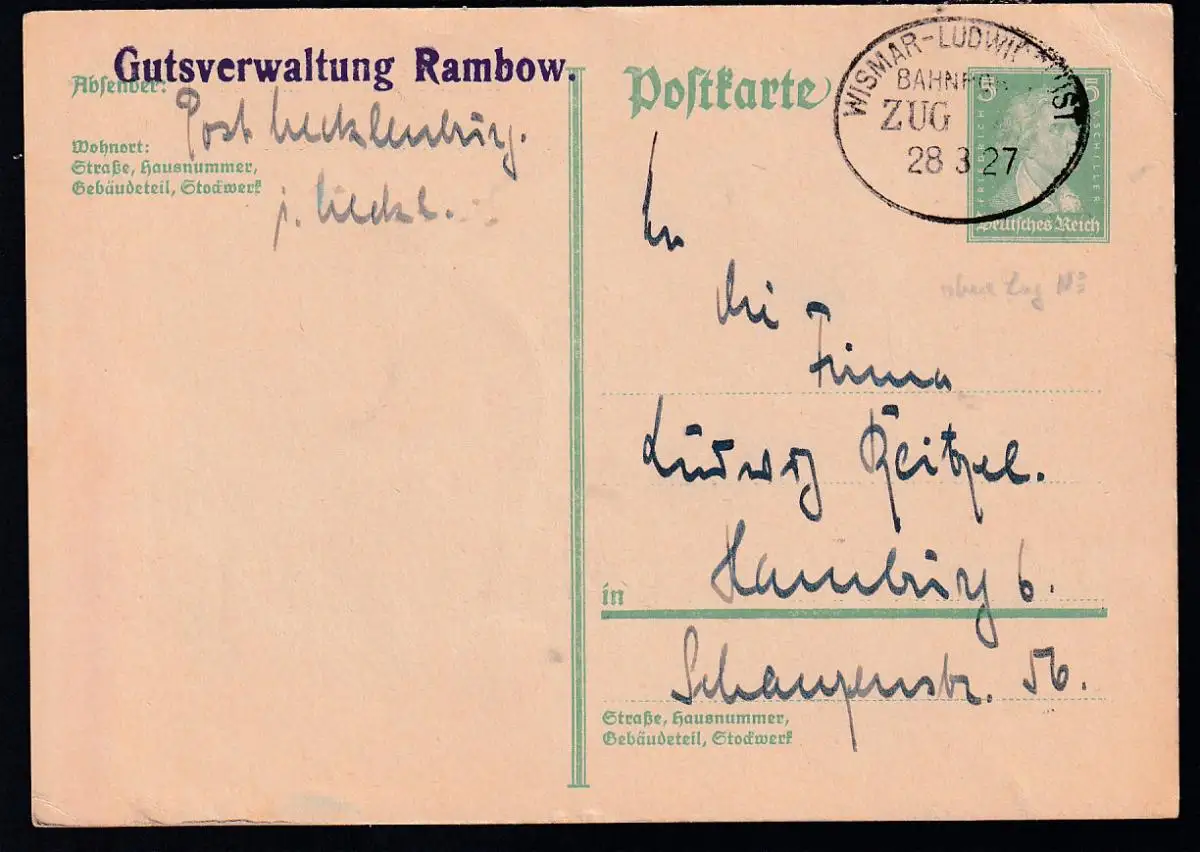 Gutsverwaltung Rambow.
Absender:
Post Mecklenburg.
i. Meckl.
Wohnort:
Straße, Hausnummer,
Gebäudeteil, Stockwerk
Postkarte
WISMAR-LUDWI ST
BAHNPO
ZUG
28 3 27
5 5
FRIEDRICH V. SCHILLER
Deutsches Reich
ohne Zug No
An
die
Firma
Ludwig
in Hamburg 6.
Schanzenstr. 56.
Straße, Hausnummer,
Gebäudeteil, Stockwerk